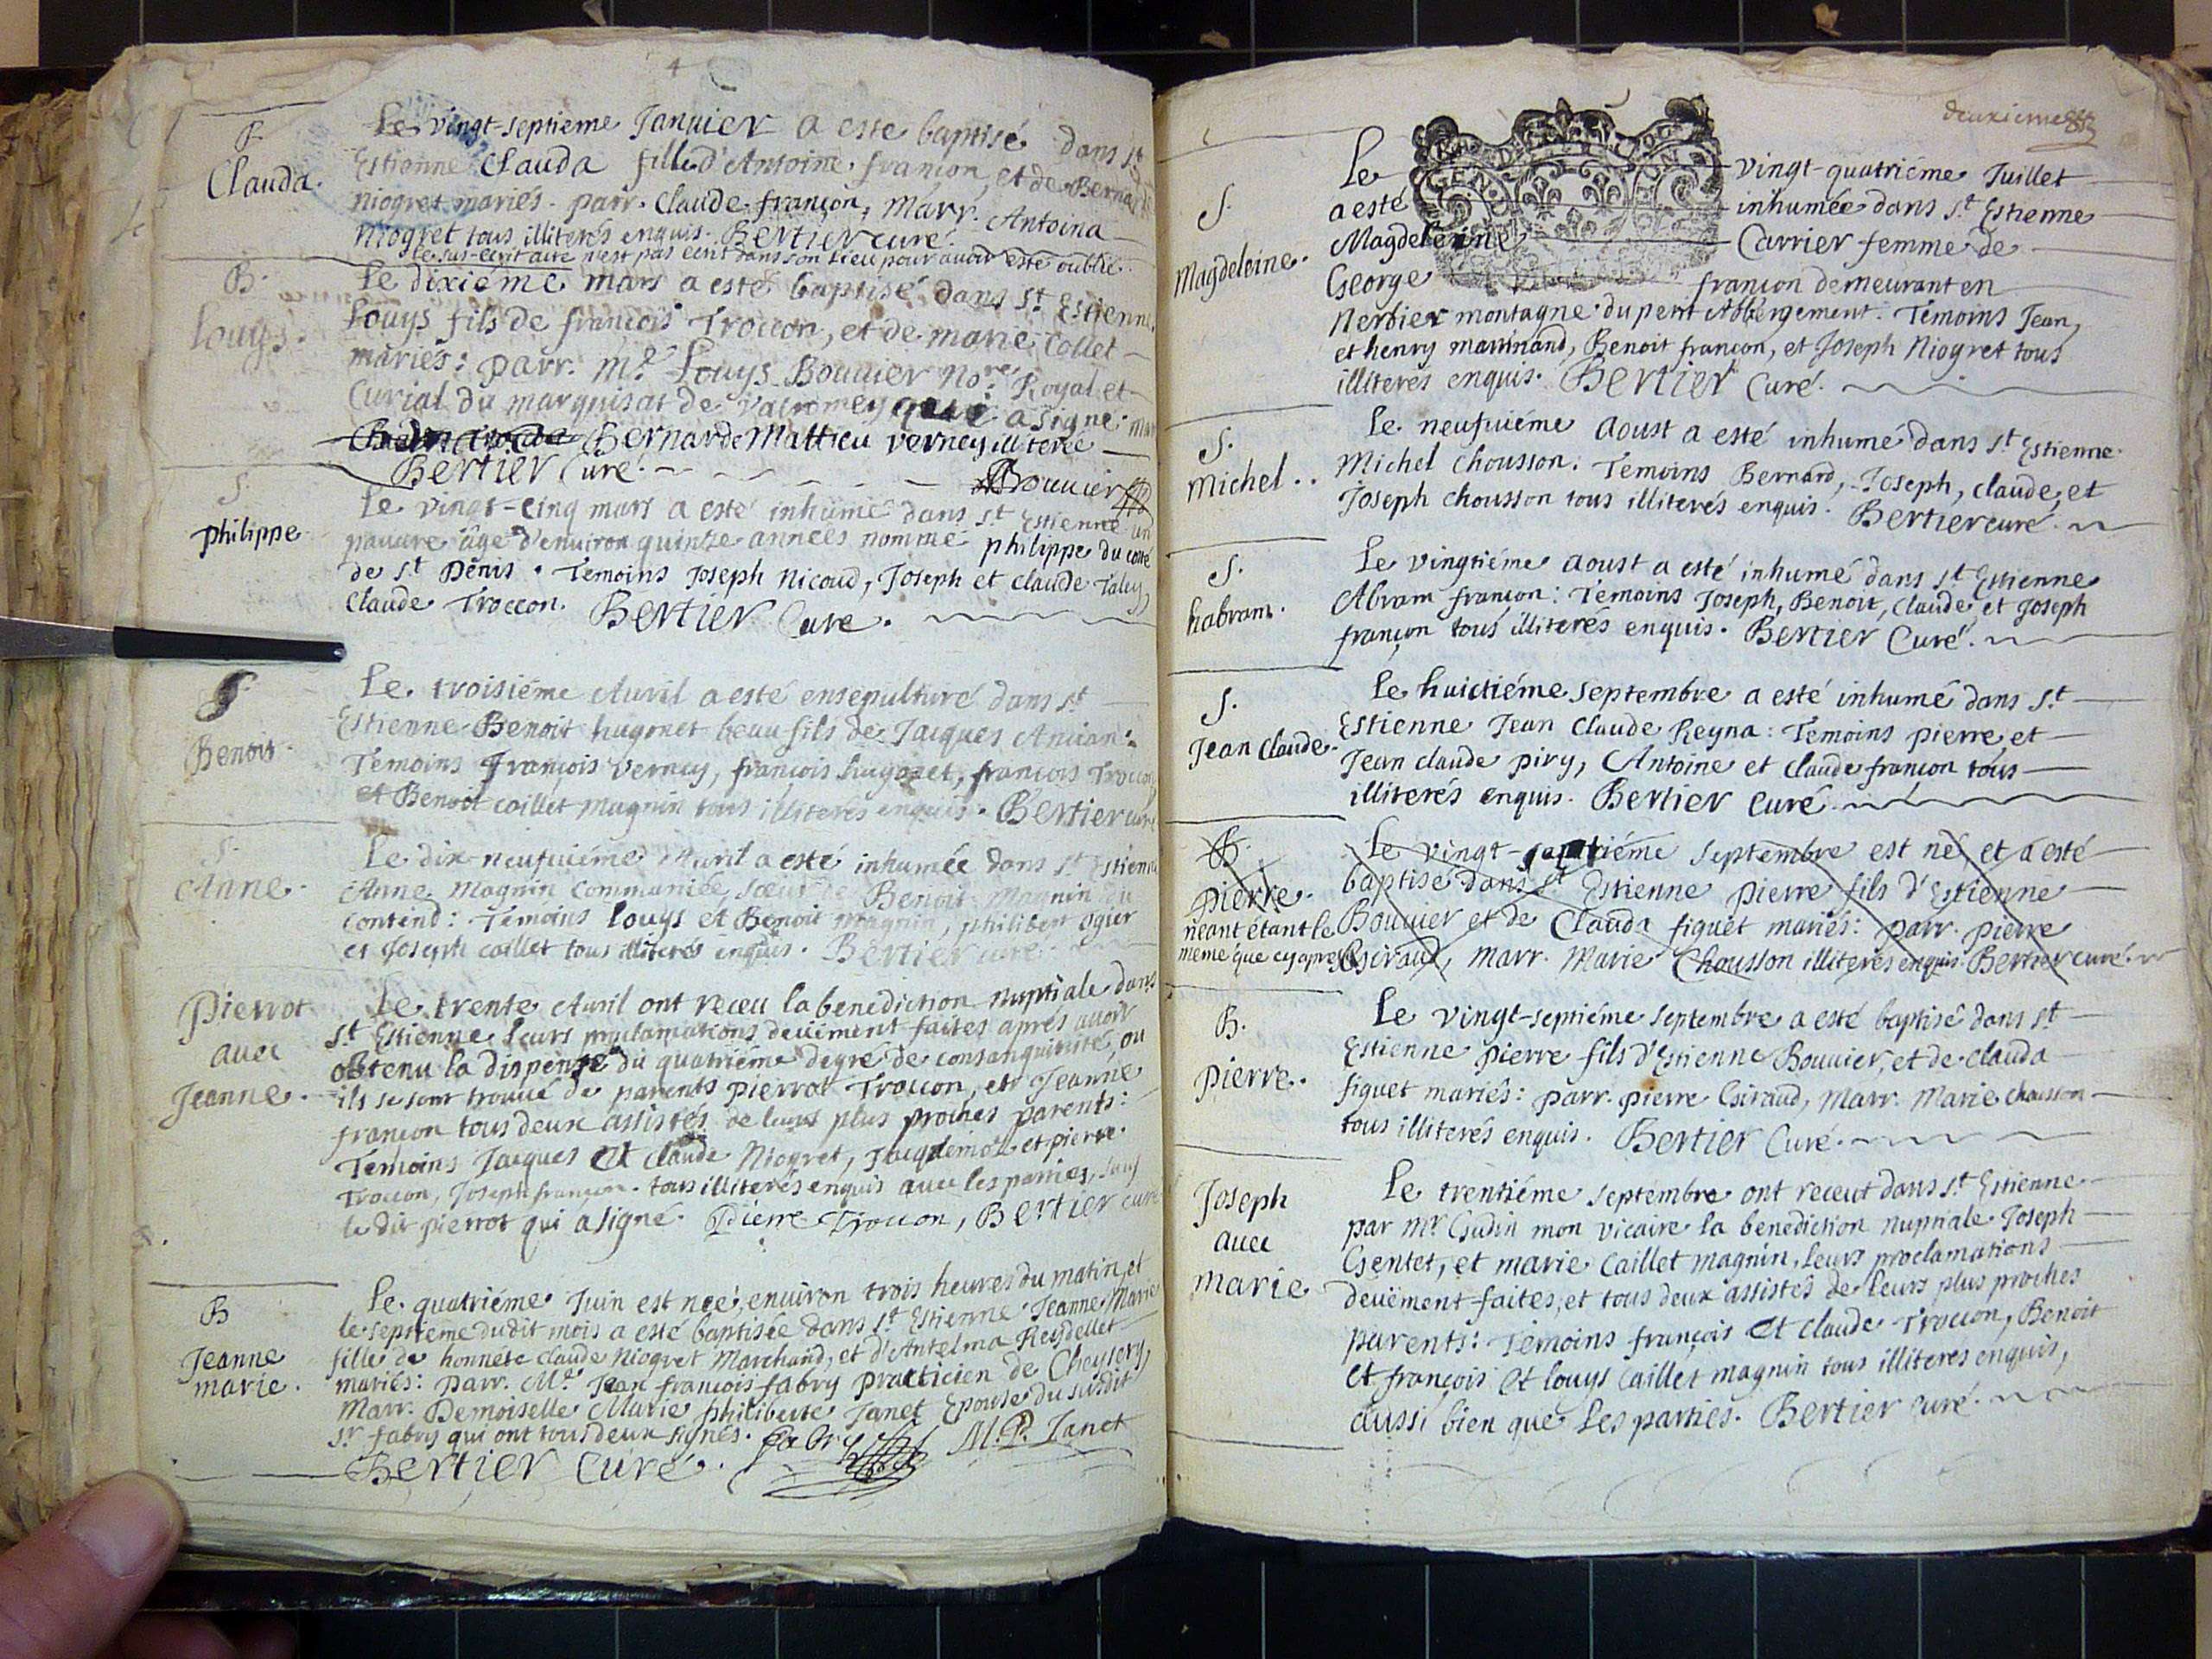 4
B.
Clauda.
Le vingt-septieme Januier a este baptisé dans st
Estienne Clauda fille d'Antoine françon, et de Bernarde
Niogret mariés. parr. Claude françon, Marr. Antoina
Niogret tous illiterés enquis. Bertier curé.
le sus-ecrit acte n'est pas ecrit dans son lieu pour auoir esté oublié.
B.
Louys.
Le dixiéme mars a esté baptisé dans St Estienne
Louys fils de françois Troccon, et de marie Collet
mariés: parr. Me Louys Bouuier Nore Royal et
Curial du marquisat de Valromey qui a signe: mar
Bernarde Mattieu Verney illiteré
Bertier Curé.
Bouuier
S.
philippe
Le vingt-cinq mars a esté inhumé dans st Estienne un
pauure âgé d'enuiron quinze années nommé philippe du costé
de st Denis. Temoins Joseph Nicoud, Joseph et claude Taley,
Claude Troccon. Bertier Curé.
S.
Benoit
Le troisiéme Auril a esté ensepulturé dans st
Estienne Benoit hugonet beau fils de Jacques Ancian:
Temoins françois Verney, françois hugonet, francois Troccon,
et Benoit caillet magnin tous illiterés enquis. Bertier curé
S.
Anne.
Le dix-neufuiéme Auril a esté inhumée dans st Estienne
Anne Magnin Communiée, sœur de Benoit Magnin du
Contend: Temoins louys et Benoit magnin, philibert ogier
et Joseph caillet tous illiterés enquis. Bertier curé
Pierrot
auec
Jeanne.
Le trente Auril ont receu la benediction nuptiale dans
st Estienne leurs proclamations deüement faites aprés auoir
obtenu la dispense du quatriéme degré de consanguinité, ou
ils se sont trouué de parents pierrot Troccon, et Jeanne
françon tous deux assistés de leurs plus proches parents:
Temoins Jacques et claude Niogret, Jacquemoz et pierre
Troccon, Joseph françon. tous illiterés enquis auec les parties, sauf
le dit pierrot qui a signé. Pierre Troccon, Bertier curé
B
Jeanne
marie.
Le quatriéme Juin est neé, enuiron trois heures du matin, et
le septieme dudit mois a esté baptisée dans st Estienne Jeanne Marie
fille de honnéte Claude Niogret Marchand, et d'Antelma Reydellet
mariés: parr. Me Jean françois fabry practicien de Cheysery,
Marr. Demoiselle Marie philiberte Janet Epouse du susdit
Sr fabry qui ont tous deux signés. fabry M. P. Janet
Bertier Curé.
deuxieme
S.
Magdeleine.
Le vingt-quatriéme Juillet
a esté inhumée dans st Estienne
Magdeleine Carrier femme de
George françon demeurant en
Nerbier montagne du petit Abbergement. Témoins Jean,
et henry martinand, Benoit françon, et Joseph Niogret tous
illiterés enquis. Bertier Curé.
GEN DE
S.
Michel..
Le neufuiéme Aoust a esté inhumé dans st Estienne
Michel chousson. Temoins Bernard, Joseph, claude, et
Joseph chousson tous illiterés enquis. Bertier curé.
S.
habram.
Le vingtiéme Aoust a esté inhumé dans st Estienne
Abram françon: Témoins Joseph, Benoit, Claude, et Joseph
françon tous illiterés enquis. Bertier Curé.
S.
Jean Claude.
Le huictiéme septembre a esté inhumé dans st
Estienne Jean Claude Reyna: Temoins pierre, et
Jean claude piry, Antoine et claude françon tous
illiterés enquis. Bertier curé.
B.
pierre.
neant étant le
meme que cy apres
Le vingt-septiéme septembre est né, et a esté
baptisé dans st Estienne pierre fils d'Estienne
Bouuier et de Clauda figuet mariés: parr. pierre
Giraud, marr. Marie Chousson illiterés enquis. Bertier curé.
B.
pierre.
Le vingt-septiéme septembre a esté baptisé dans st
Estienne pierre fils d'Estienne Bouuier, et de clauda
figuet mariés: parr. pierre Giraud, Marr. Marie chousson
tous illiterés enquis. Bertier Curé.
Joseph
auec
marie
Le trentiéme septembre ont receut dans st Estienne
par Mr Gudin mon vicaire la benediction nuptiale Joseph
Gentet, et marie Caillet magnin, leurs proclamations
deüement faites, et tous deux assistés de leurs plus proches
parents: Témoins françois et claude Troccon, Benoit
et françois et louys Caillet magnin tous illiteres enquis,
aussi bien que les parties. Bertier curé.